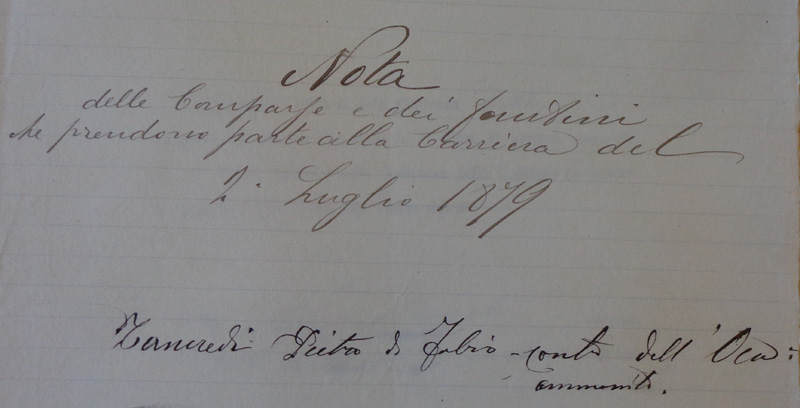 Nota
delle Comparse e dei fantini
che prendono parte alla Carriera del
2. Luglio 1879
Tancredi Pietro di Fabio - conto dell'Oca:
ammonito.